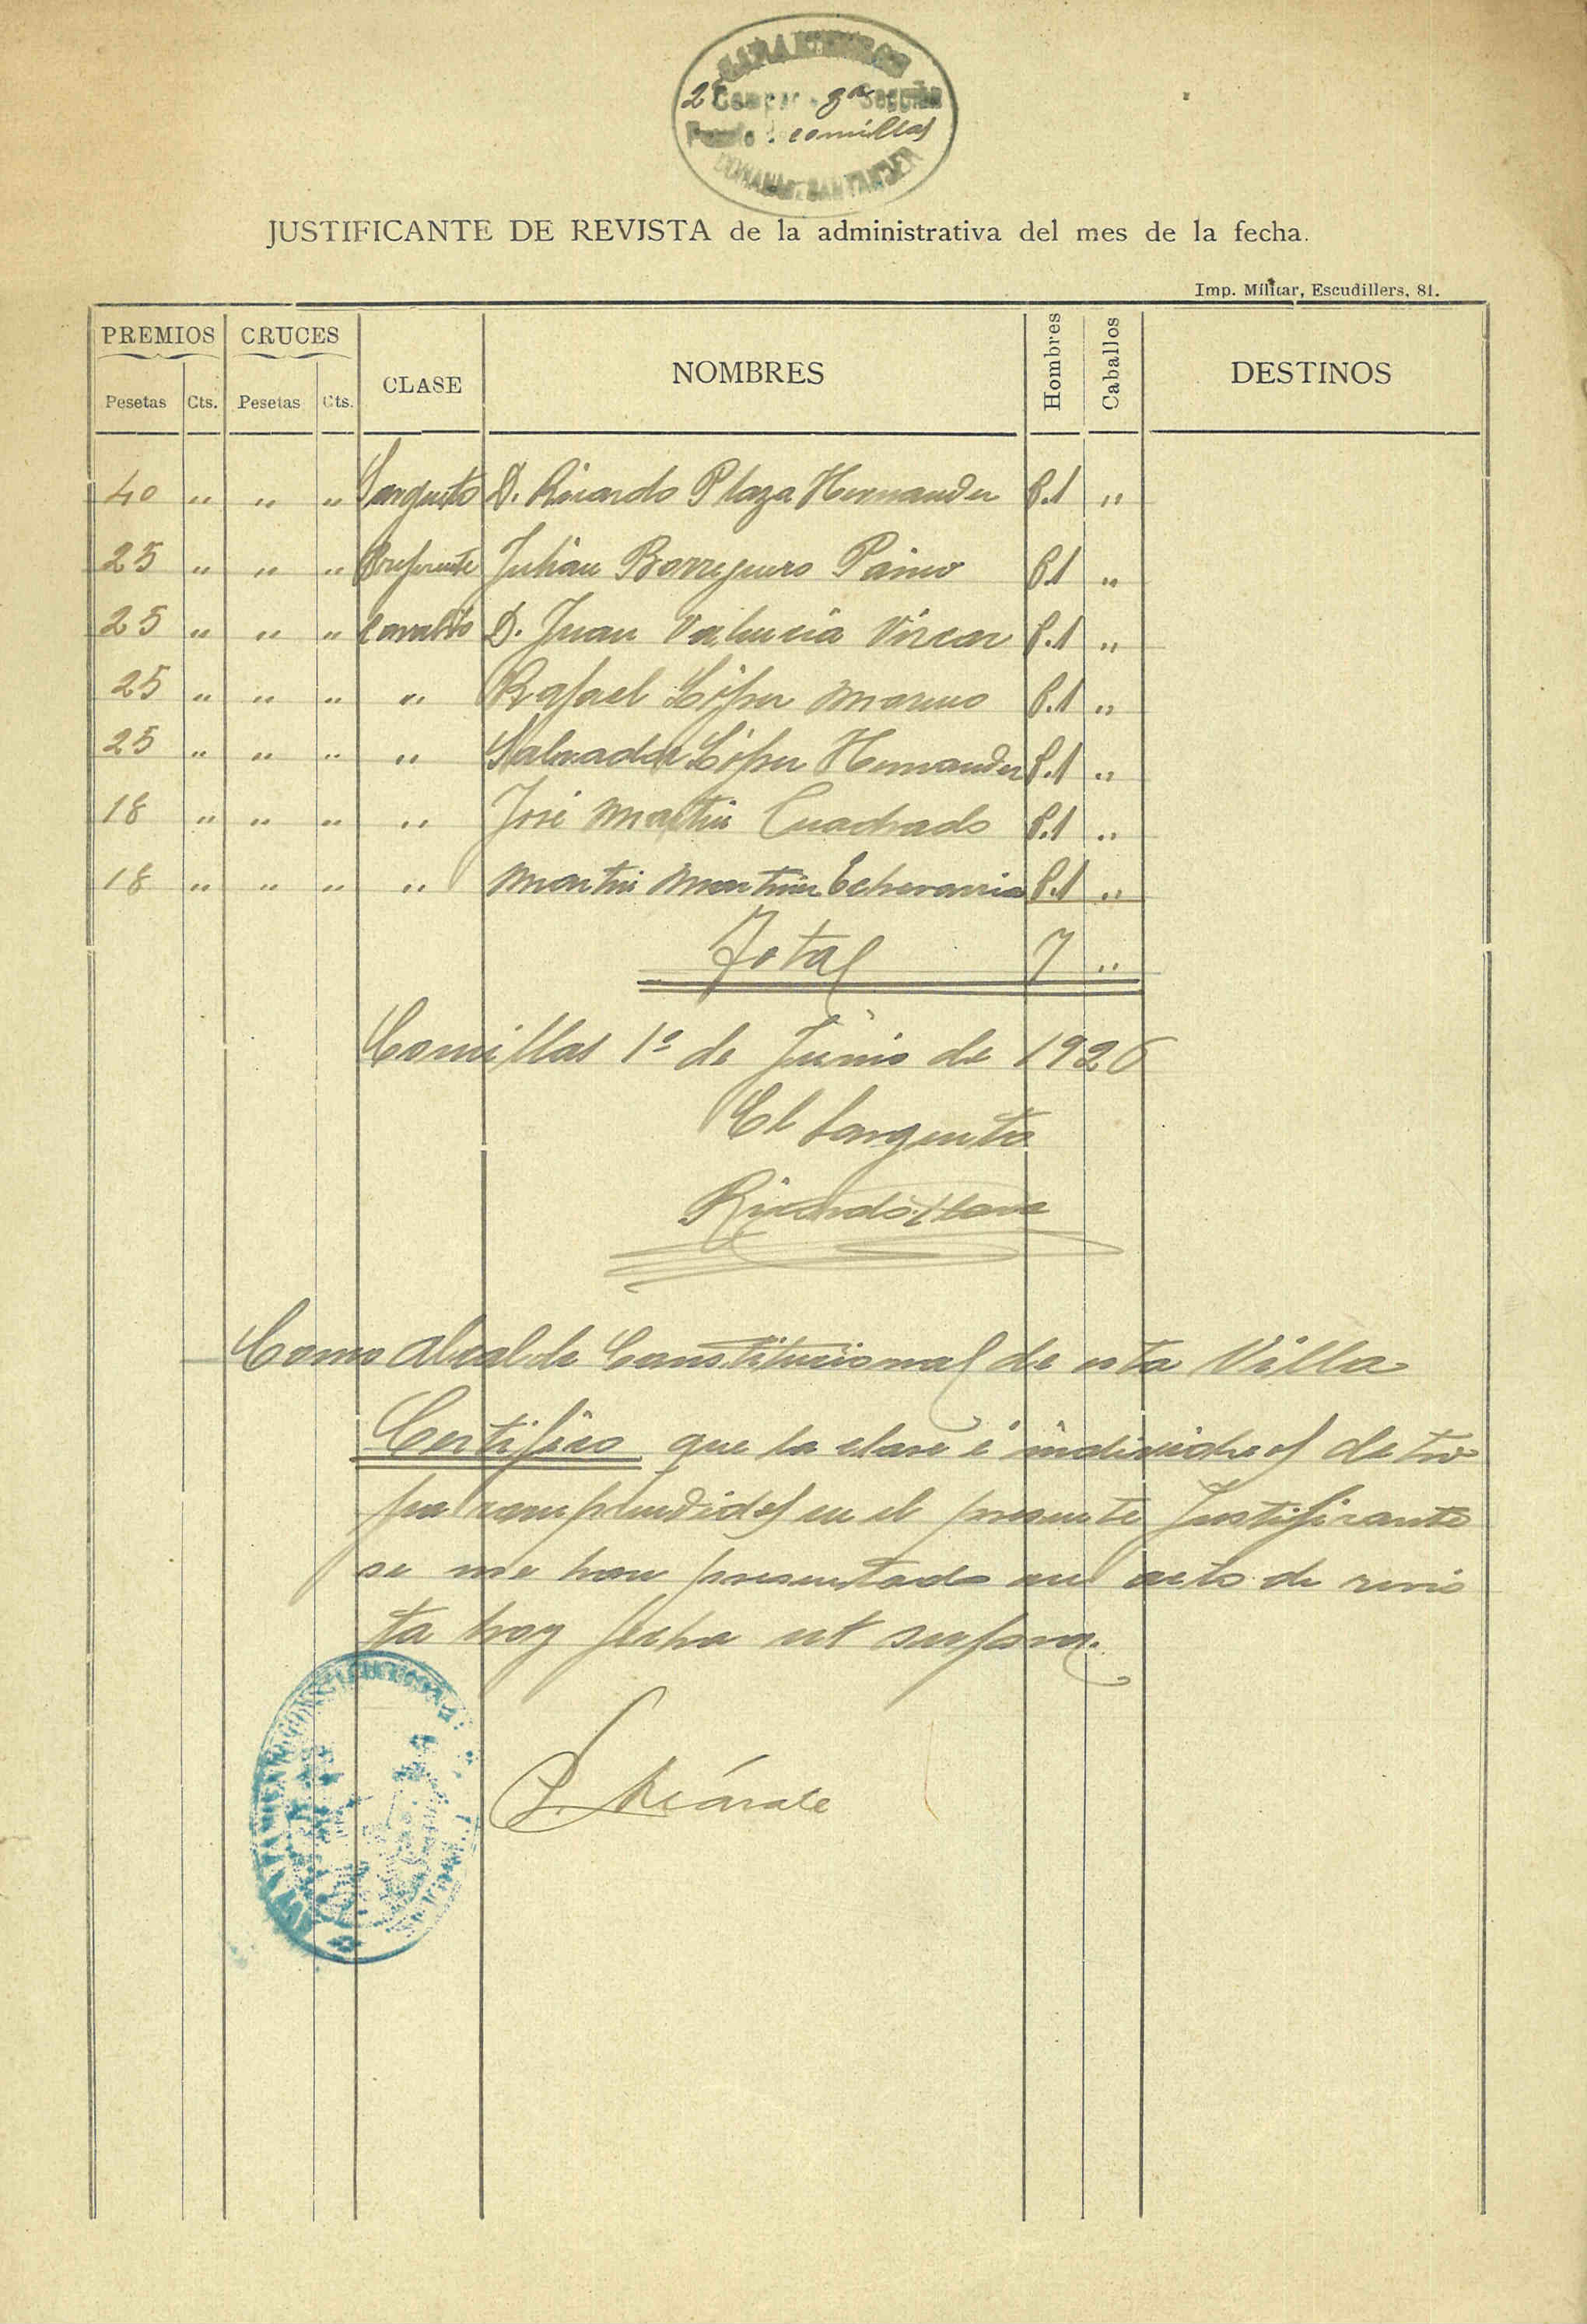 CARABINEROS
2ª Compañ 3ª Sección
Puesto comillas
COMANDª SANTANDER
JUSTIFICANTE DE REVISTA de la administrativa del mes de la fecha.
Imp. Militar, Escudillers, 81.
PREMIOS CRUCES CLASE NOMBRES Hombres Caballos DESTINOS
Pesetas Cts. Pesetas Cts.
40 " " " Sargento D. Ricardo Plaza Hernandez P.1 "
25 " " " Preferente Julian Borreguero Paino P.1 "
25 " " " Carabº D. Juan Valencia P.1 "
25 " " " " Rafael López Moreno P.1 "
25 " " " " Salvador López Hernandez P.1 "
18 " " " " José Martin Cuadrado P.1 "
18 " " " " Martin Echevarria P.1 "
Total 7 "
Comillas 1º de Junio de 1926
El Sargento
Ricardo Plaza
Como Alcalde Constitucional de esta Villa
Certifico que la clase é individuos de tro
pa comprendidos en el presente Justificante
se me han presentado en acto de revis
ta hoy fecha ut supra.